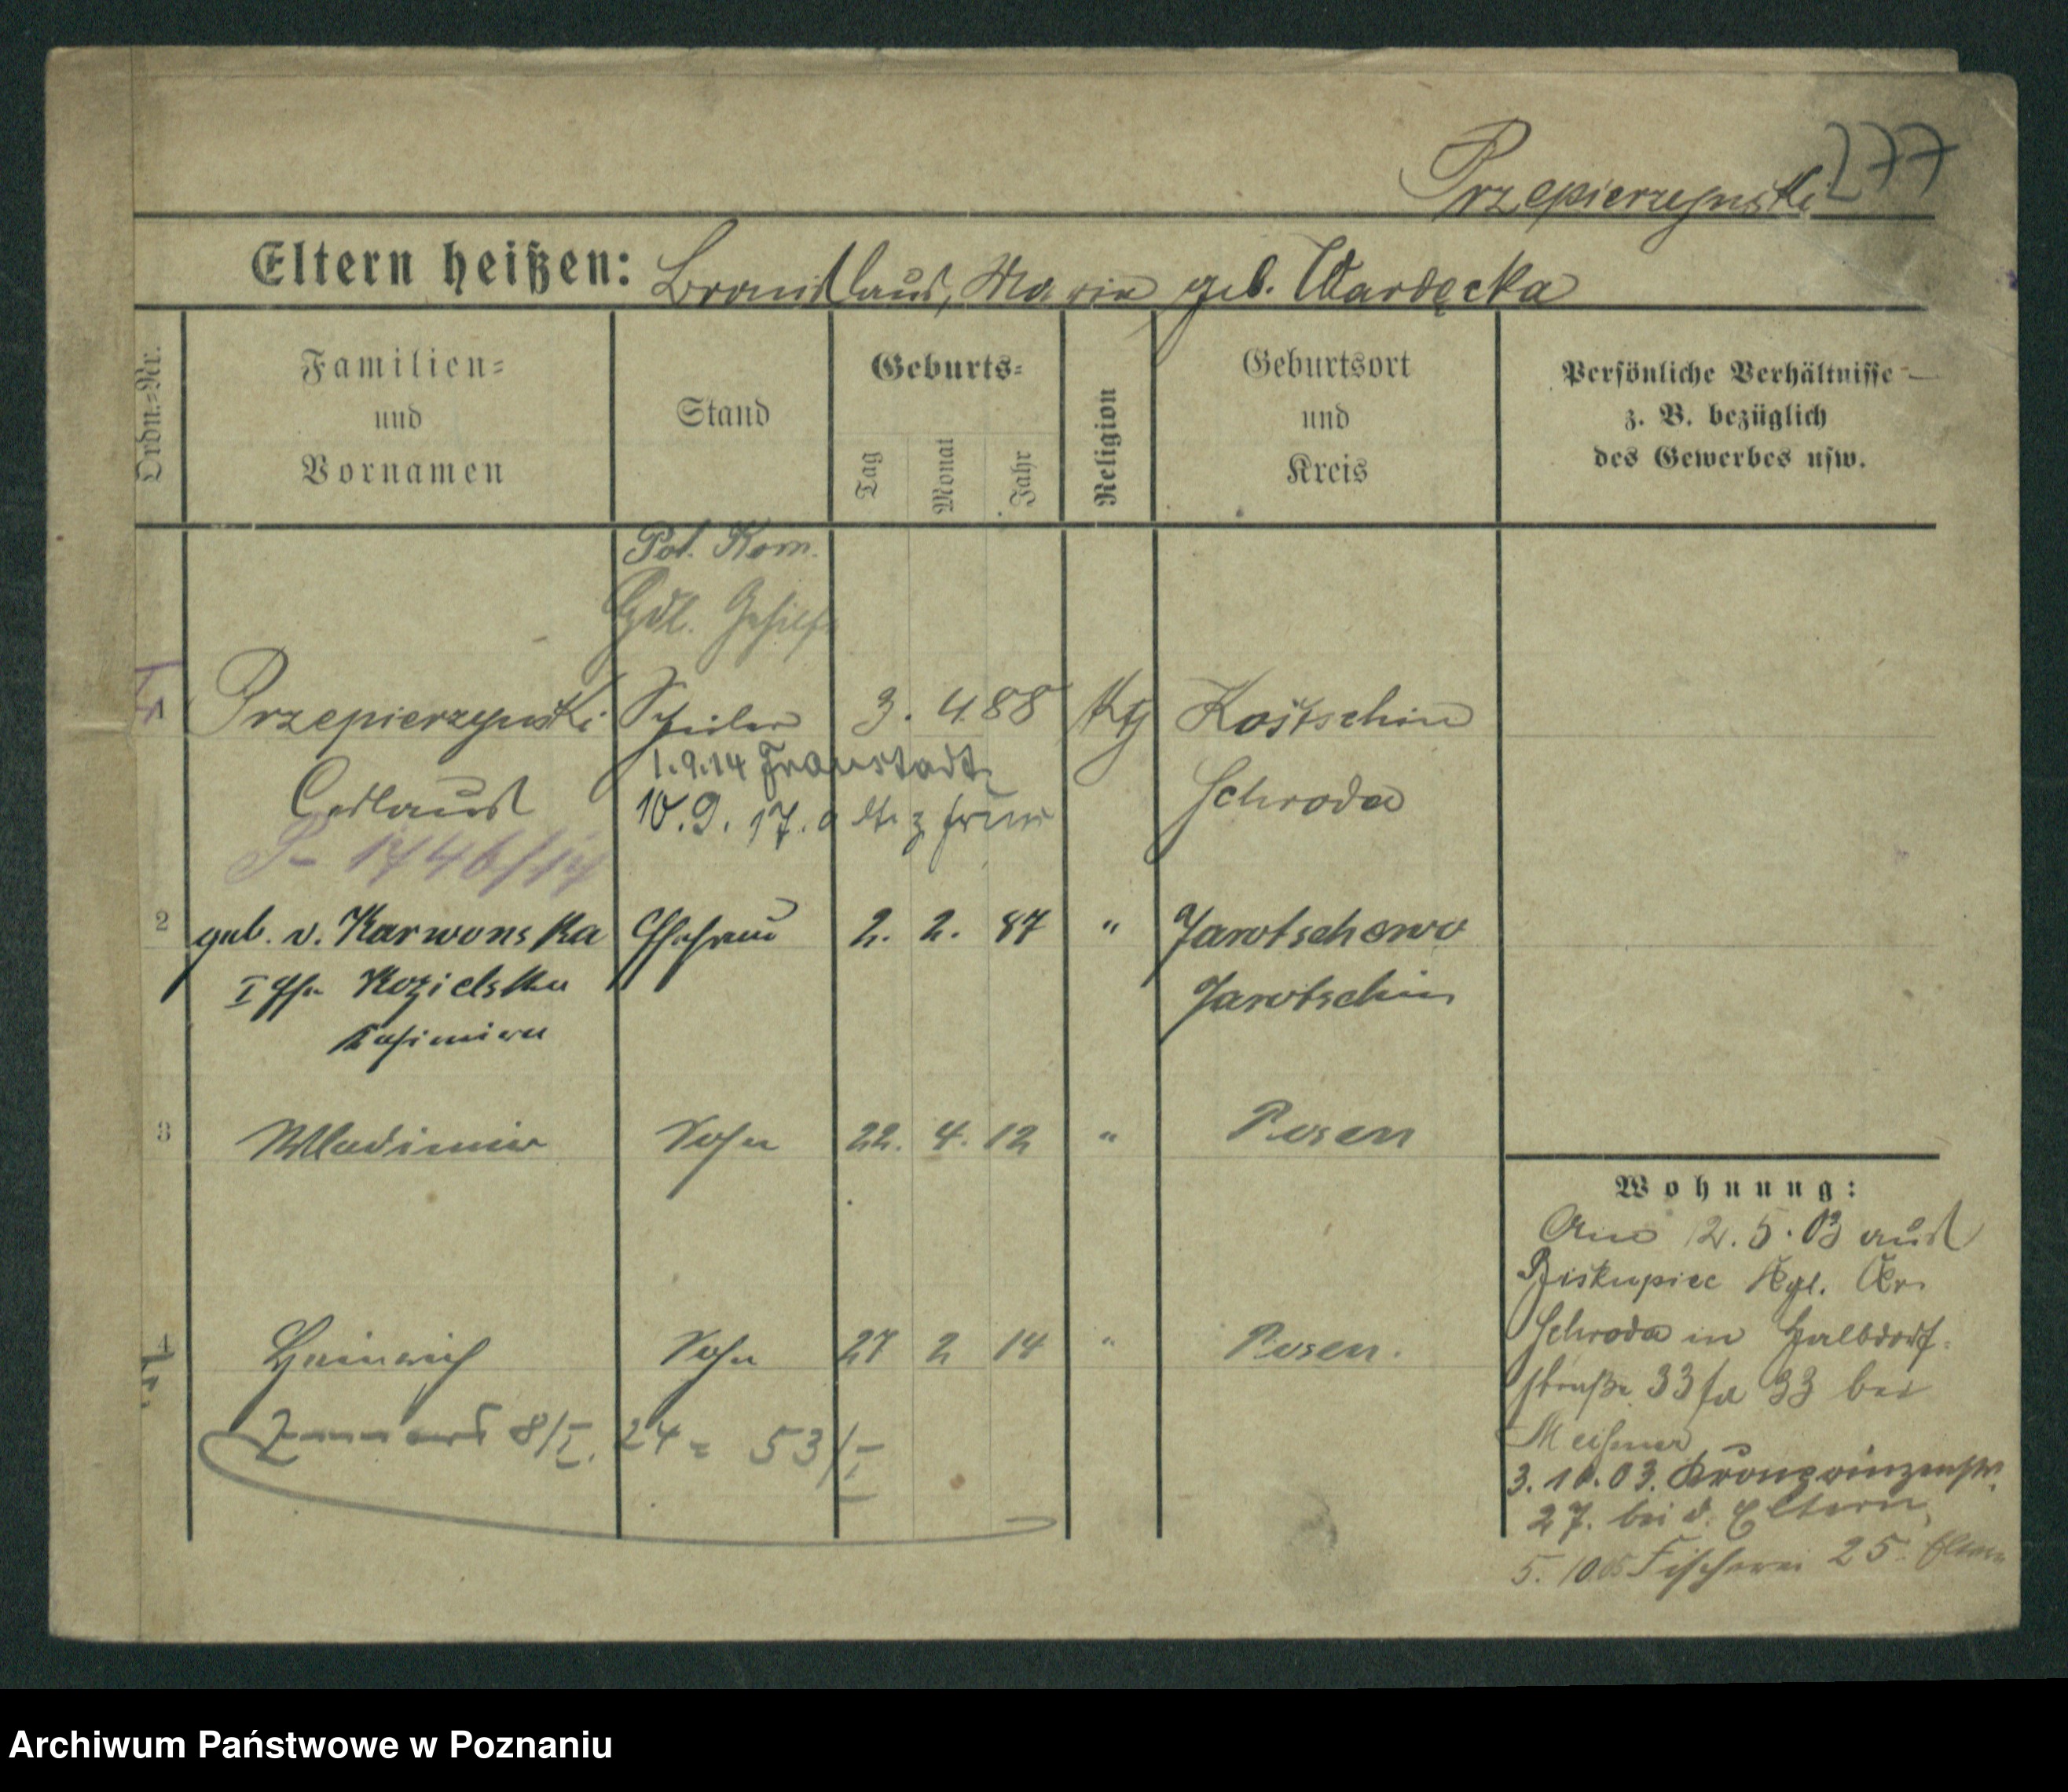 277
Przepierzynski
Eltern heißen: Bronislaus, Maria geb. Wardęcka
Ordn.-Nr.
Familien-
und
Vornamen
Stand
Geburts-
Tag
Monat
Jahr
Religion
Geburtsort
und
Kreis
Persönliche Verhältnisse
z. B. bezüglich
des Gewerbes usw.
Pol. Kom.
Hdl. Gehilfe
1 Przepierzynski Schüler 3. 4. 88 Ktg Kostschin
1.9.14 Fraustadt
Ceslaus Schroda
10.9.17.
1746/14
2 geb. v. Karwonska Ehefrau 2. 2. 87 " Jarotschewo
I Ehe Kozielska Jarotschin
Kasimira
3 Wladimir Sohn 22. 4. 12 " Posen
4 Heinrich Sohn 27 2 14 " Posen.
8/I. 24 = 53/I
Wohnung:
Am 12. 5. 03 aus
Biskupice Kgl. Kr.
Schroda in Halbdorf-
straße 33 33 bei
Meißner
3. 10. 03. Kronprinzenstr.
27. bei d. Eltern
5. 10.05 Fischerei 25. Eltern
Archiwum Państwowe w Poznaniu